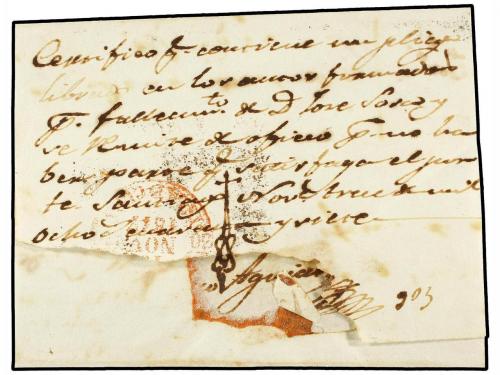 Certifico q.e contiene un pliego
librado en los autos formados
p.r fallecim.to de D. Jose Sorez y
se Remite de oficio p.r no ha
ber parte q.e satisfaga el por
te Santiago Nov.e trece de mil
ocho cuarenta y siete
Aguiar